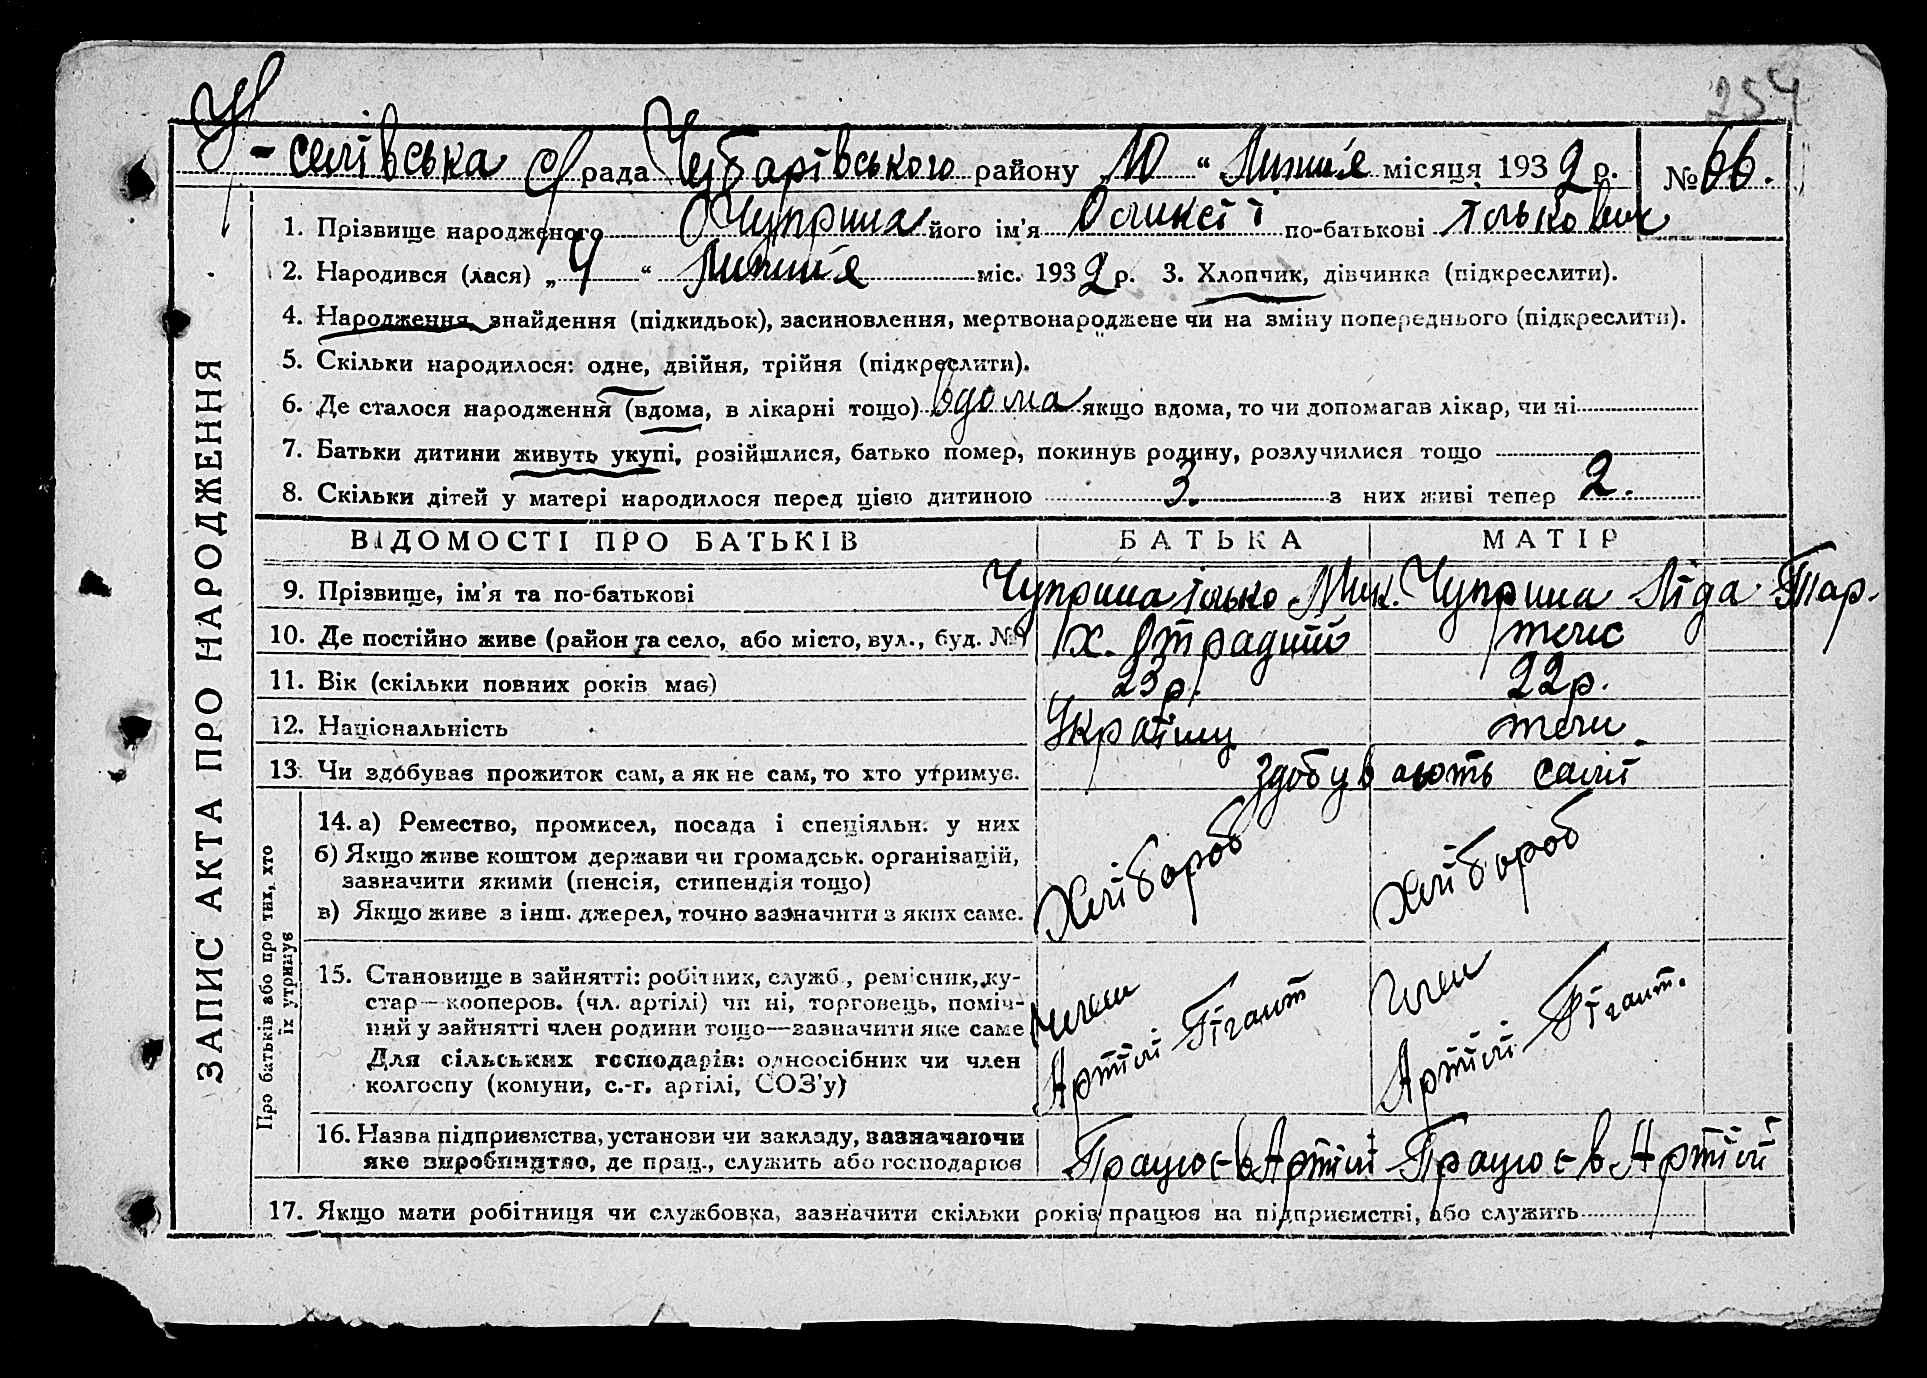 254
Н-селівська С/рада Чубарівського району „10“ Липня місяця 1932 р. № 66.
ЗАПИС АКТА ПРО НАРОДЖЕННЯ
1. Прізвище народженого Чуприна його ім'я Оликсій по-батькові Ількович
2. Народився (лася) „4“ Липня міс. 1932 р. 3. Хлопчик, дівчинка (підкреслити).
4. Народження, знайдення (підкидьок), засиновлення, мертвонароджене чи на зміну попереднього (підкреслити).
5. Скільки народилося: одне, двійня, трійня (підкреслити).
6. Де сталося народження (вдома, в лікарні тощо) вдома якщо вдома, то чи допомагав лікар, чи ні
7. Батьки дитини живуть укупі, розійшлися, батько помер, покинув родину, розлучилися тощо
8. Скільки дітей у матері народилося перед цією дитиною 3. з них живі тепер 2.
ВІДОМОСТІ ПРО БАТЬКІВ БАТЬКА МАТІР
9. Прізвище, ім'я та по-батькові Чуприна Ілько Мик. Чуприна Ліда Тар.
10. Де постійно живе (район та село, або місто, вул., буд. № х. Отрадний теж
11. Вік (скільки повних років має) 23 р. 22 р.
12. Національність Україн.
13. Чи здобуває прожиток сам, а як не сам, то хто утримує. здобувають самі
Про батьків або про тих, хто їх утримує
14. а) Ремество, промисел, посада і спеціяльн. у них
б) Якщо живе коштом держави чи громадськ. організацій,
зазначити якими (пенсія, стипендія тощо)
в) Якщо живе з інш. джерел, точно зазначити з яких саме.
Хлібороб Хлібороб
15. Становище в зайнятті: робітник, служб., ремісник, ку-
стар—кооперов. (чл. артілі) чи ні, торговець, поміч-
ний у зайнятті член родини тощо—зазначити яке саме
Для сільських господарів: одноосібник чи член
колгоспу (комуни, с.-г. артілі, СОЗ'у)
Член Артілі Гігант Член Артілі Гігант.
16. Назва підприємства, установи чи закладу, зазначаючи
яке виробництво, де прац., служить або господарює
Працює в Артілі Працює в Артілі
17. Якщо мати робітниця чи службовка, зазначити скільки років працює на підприємстві, або служить